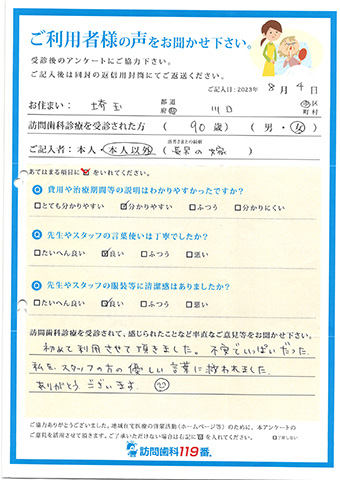 ご利用者様の声をお聞かせ下さい。
受診後のアンケートにご協力下さい。
ご記入後は同封の返信用封筒にてご返送ください。
ご記入日:2023年 8月 4日
お住まい: 埼玉 都道府県 川口 市区町村
訪問歯科診療を受診された方 ( 90歳) (男・女)
ご記入者:本人・本人以外 (長男の嫁)
あてはまる項目に☑をいれてください。
Q 費用や治療期間等の説明はわかりやすかったですか?
□とても分かりやすい ☑分かりやすい □ふつう □分かりにくい
Q 先生やスタッフの言葉使いは丁寧でしたか?
□たいへん良い ☑良い □ふつう □悪い
Q 先生やスタッフの服装等に清潔感はありましたか?
□たいへん良い ☑良い □ふつう □悪い
訪問歯科診療を受診されて、感じられたことなど率直なご意見等をお聞かせ下さい。
初めて利用させて頂きました。不安でいっぱいだった
私を、スタッフの方の優しい言葉に救われました。
ありがとうございます。
ご協力ありがとうございました。地域在宅医療の啓蒙活動(ホームページ等)のために、本アンケートの
ご意見を活用させて頂きます。ご了承いただけない場合は右記に☑を入れてください。 □了承しない
訪問歯科119番